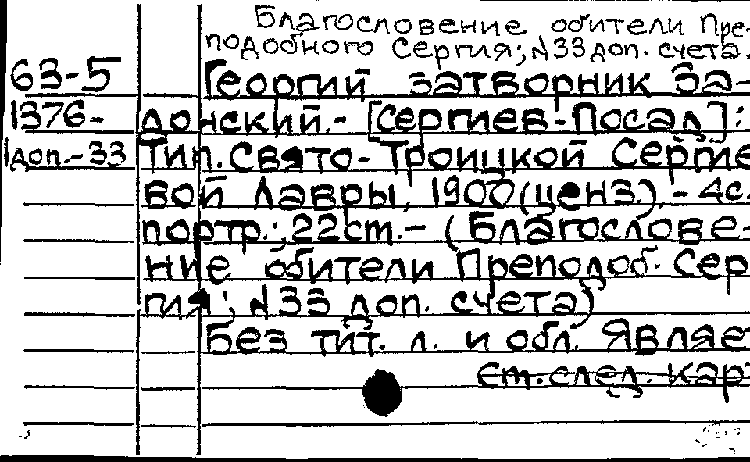 Благословение обители Пре-
подобного Сергия; №33 доп. счета.
63-5 Георгий затворник За-
1376- донский.- [Сергиев-Посад]:
1доп.-33 Тип. Свято-Троицкой Сергие
вой Лавры, 1900 (ценз.).- 4с.
портр.; 22см.- (Благослове-
ние обители Преподоб. Сер
гия; №33 доп. счета)
Без тит. л. и обл. Являе
см. след. кар